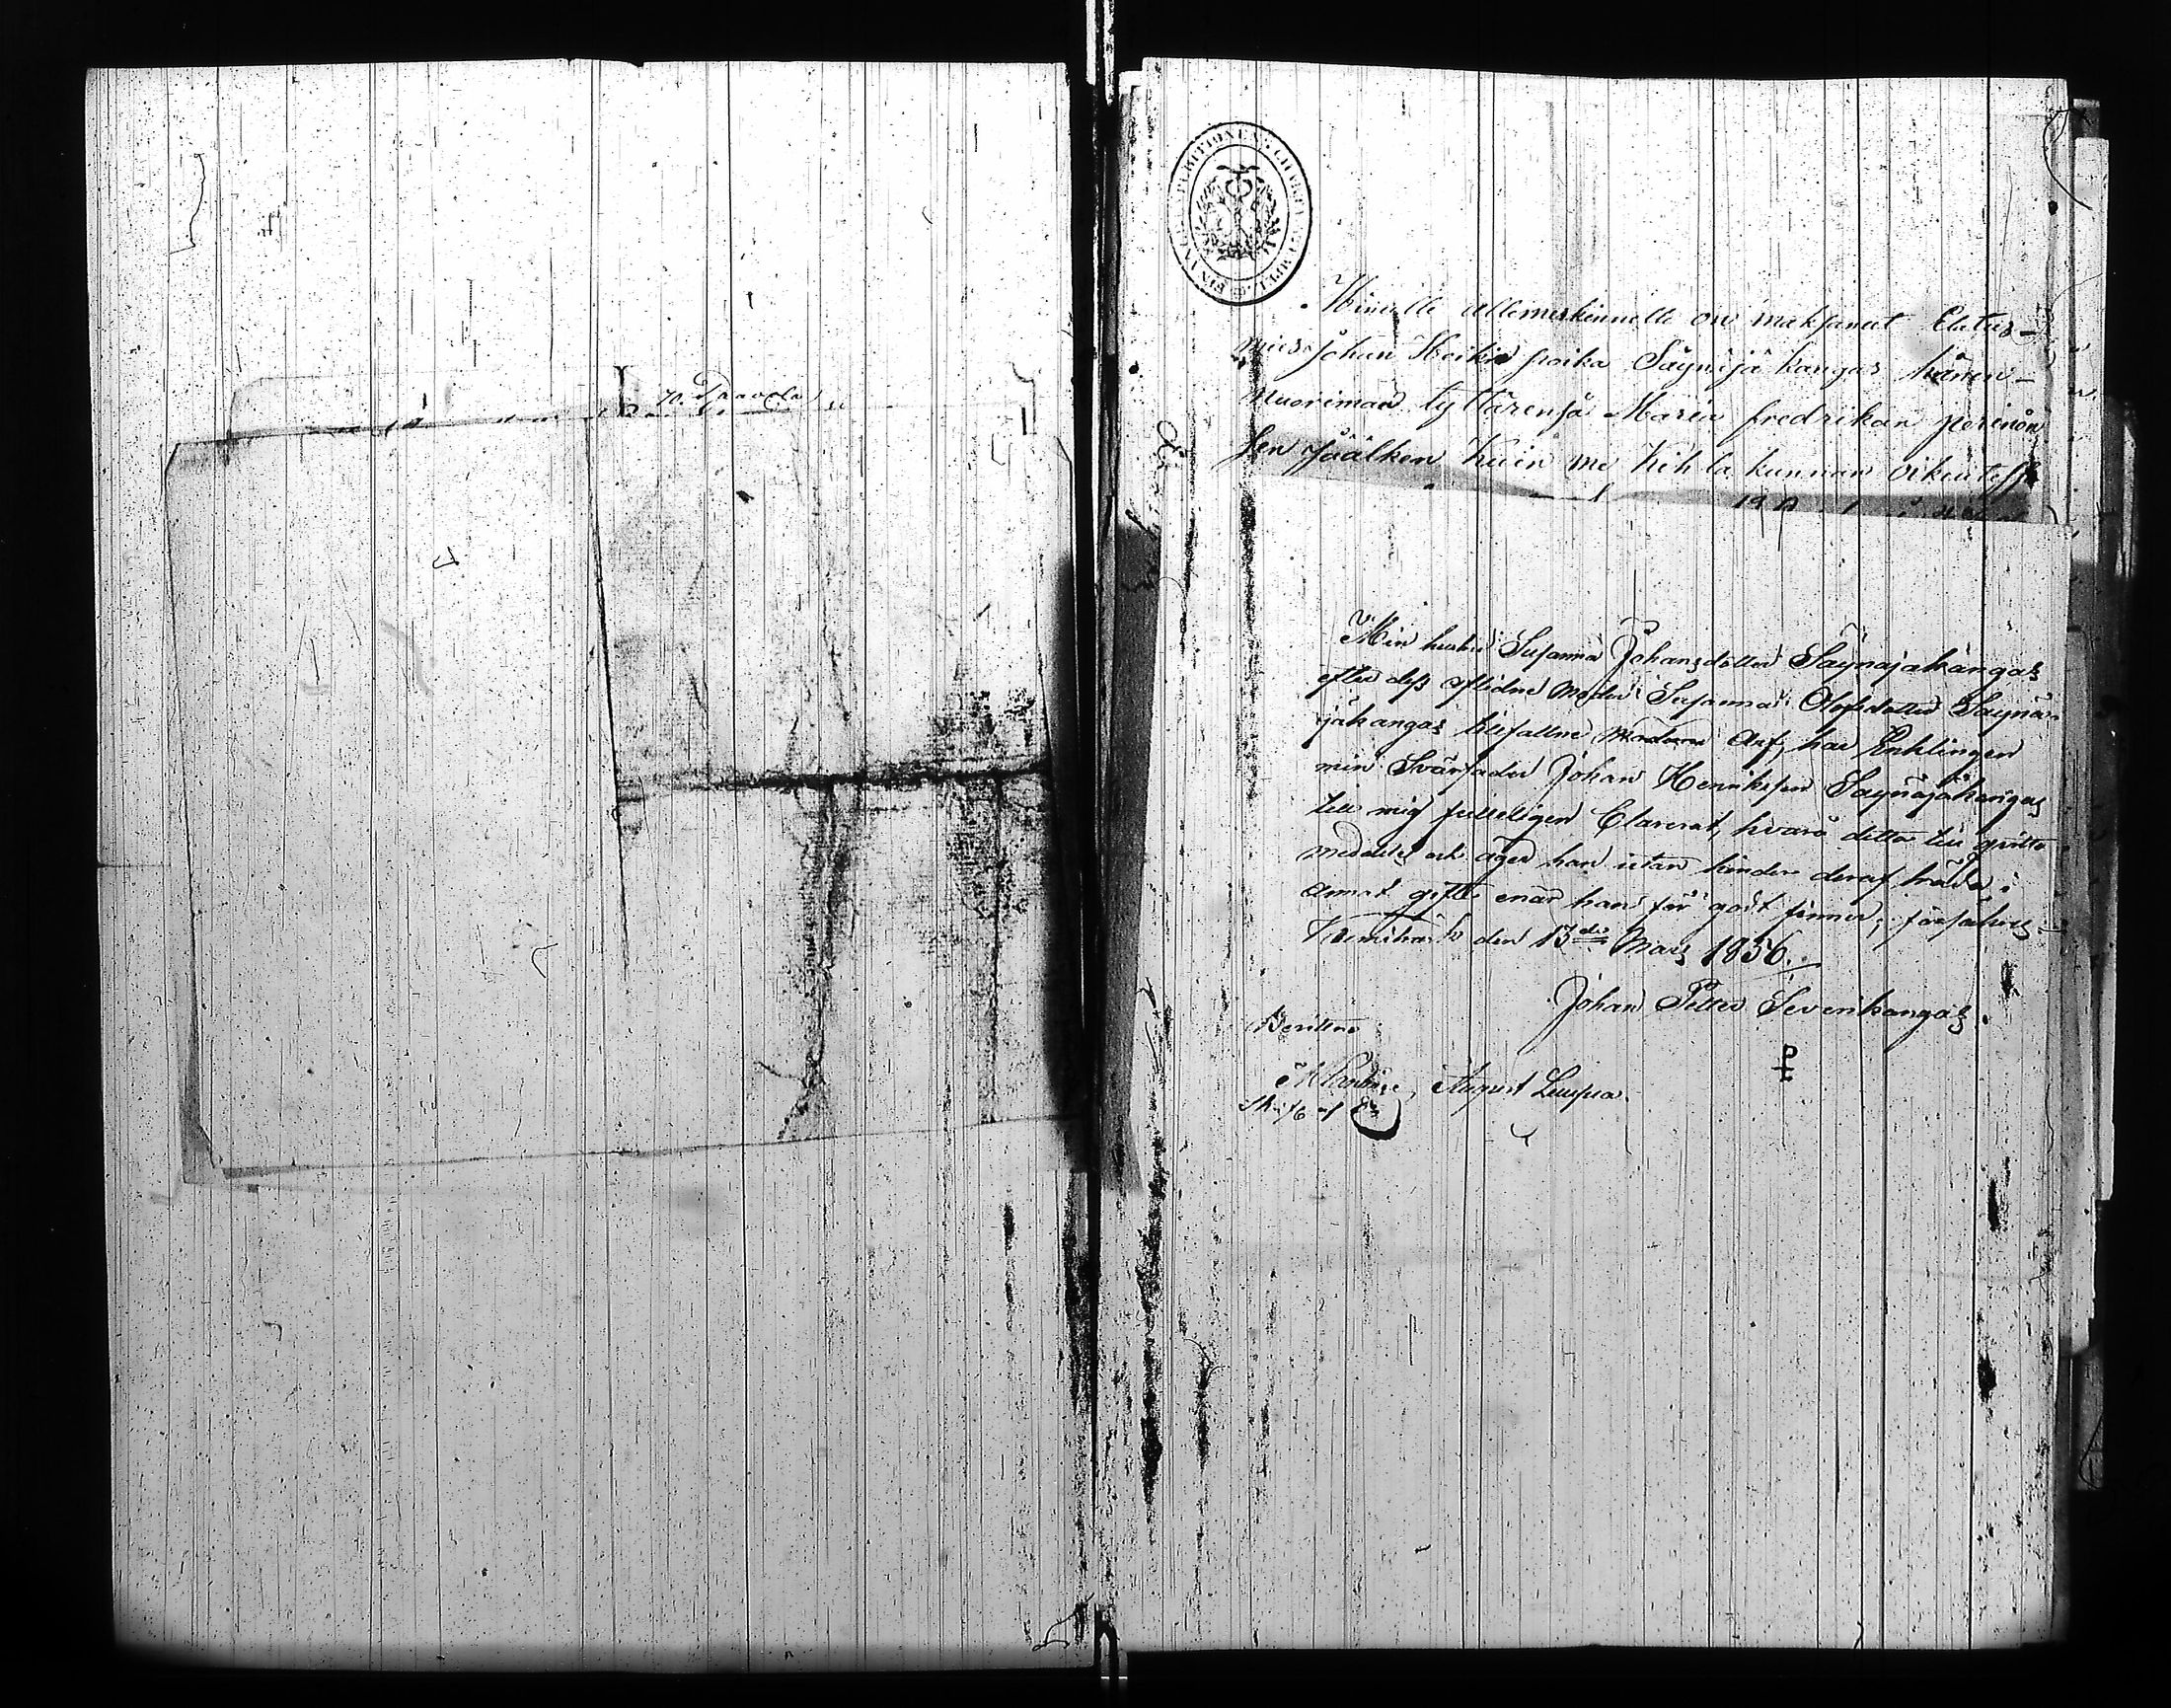 Minulle allemerkinnelle on maksanut Elatus-
mies Johan Heikin poika Säynäjäkangas hänen
nuoriman tyttärensä Maria fredrikan perinön
sen jäälken kuin me Kihlakunnan Oikeutessa
Min hustru Susanna Johansdotter Säynäjäkangas
efter dess aflidne Moder Susanna Olofsdotter Säynä-
jäkangas tillfallne Arf, har Enklingen
min Svärfader Johan Henriksson Säynäjäkangas
till mig fulleligen Clarerat, hvarå detta till qvitto
meddelas och äger han utan hinder deraf träda i
annat gifte enär han för godt finner, försäkras
den 13de Mars 1856.
Johan Petter Sevenkangas.
Bevittna
August Luupua.